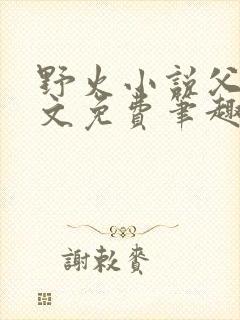 野火小説父
文免費筆趣
謝敕賚